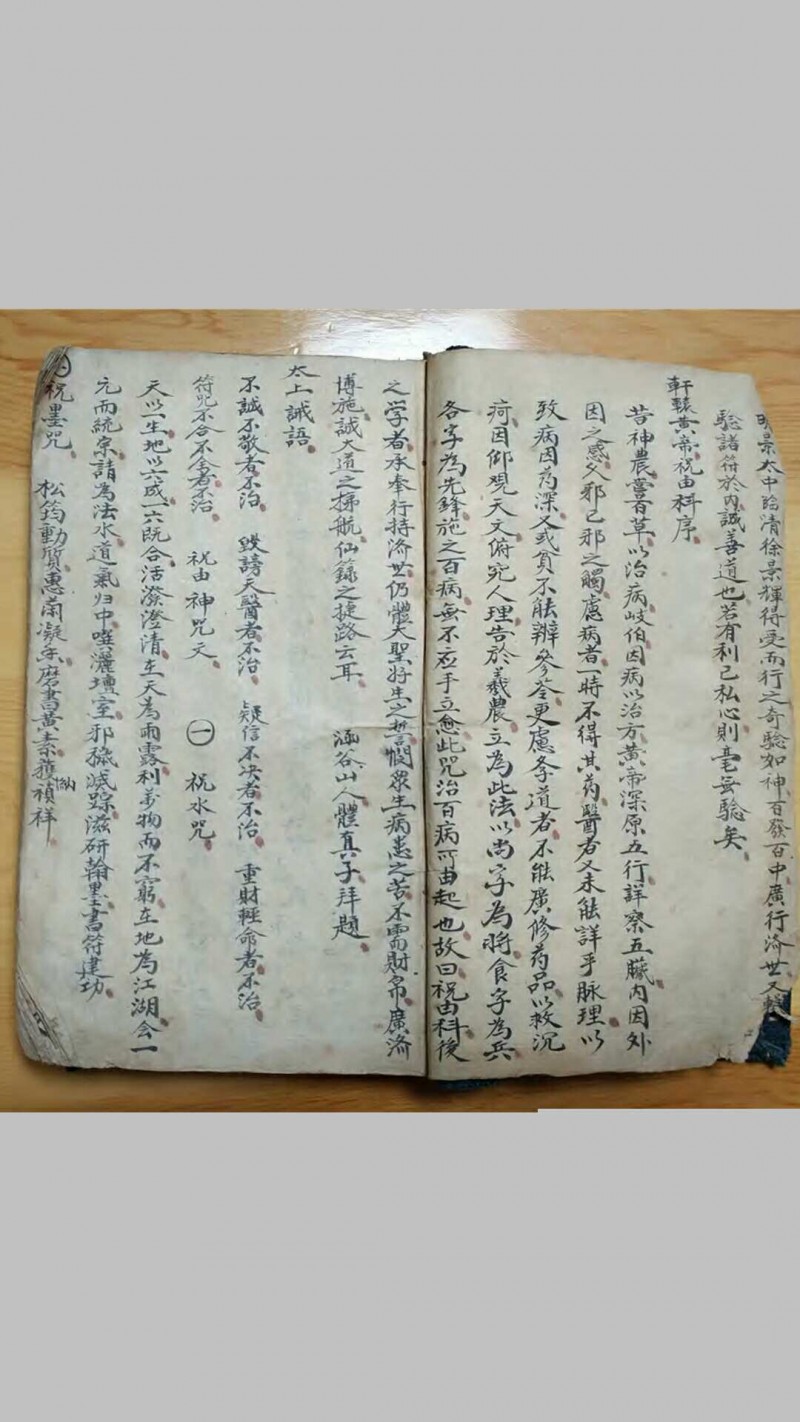 明景太中詒清徐景輝得受而行之奇驗如神百發百中廣行濟世又
驗諸符於內誠善道也若有利己私心則毫无驗矣
軒轅黃帝祝由科序
昔神農嘗百草以治病岐伯因病以治方黃帝深原五行詳察五臟內因外
因之感父邪已邪之觸慮病者一時不得其药醫者又未能詳乎脈理以
致病因药深又或貧不能辦參苓更慮奉道者不能廣修药品以救沉
疴因仰观天文俯究人理告於羲農立為此法以尚字為將食字為兵
各字為先鋒施之百病無不应手立愈此咒治百病可由起也故曰祝由科後
之学者承奉行持濟世仍體大聖好生之誓憫眾生病患之苦不需財帛廣濟
博施誠大道之梯航仙籙之捷路云耳 涵谷山人體真子拜題
太上誡語
不誠不敬者不治 毀謗天醫者不治 疑信不决者不治 重財輕命者不治
符咒不合不全者不治 祝由神咒文 一 祝水咒
天以一生地以六成一六既合活潑澄清在天為雨露利萬物而不窮在地為江湖会一
元而統宗請為法水道氣归中噀灑壇室邪穢滅踪滋研翰墨書符建功
二祝墨咒 松筠勳質惠蘭凝馨磨書黃素獲禎祥